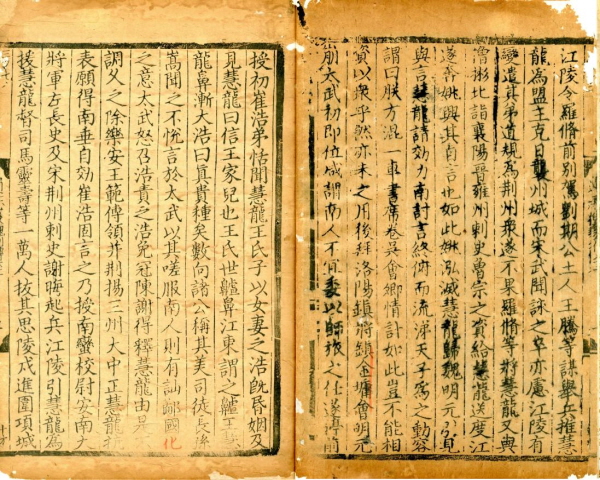 江陵令羅脩前别駕劉期公土人王騰等謀舉兵推慧
龍為盟主克日襲州城而宋武聞詠之卒亦慮江陵有
變遣其弟道規為荆州衆遂不果羅脩等將慧龍又與
僧彬比詣襄陽晉雍州刺史魯宗之資給慧龍送度江
遂奔姚興其自言也如此姚泓滅慧龍歸魏明元引見
與言慧龍請効力南討言終俯而流涕天子為之動容
謂曰朕方混一車書席卷吳會卿情計如此豈不能相
資以衆乎然亦未之用後拜洛陽鎮將鎮金墉會明元
崩太武初即位咸謂南人不宜委以師旅之任遂停前
授初崔浩弟恬聞慧龍王氏子以女妻之浩既昏姻及
見慧龍曰信王家兒也王氏世齇鼻江東謂之齇王慧
龍鼻漸大浩曰真貴種矣數向諸公稱其美司徒長孫
嵩聞之不悅言於太武以其嗟服南人則有訕鄙國化
之意太武怒召浩責之浩免冠陳謝得釋慧龍由是
調父之除樂安王範傅領并荆揚三州大中正慧龍抗
表願得南垂自効崔浩固言之乃授南蠻校尉安南大
將軍左長史及宋荆州刺史謝晦起兵江陵引慧龍為
援慧龍督司馬靈壽等一萬人拔其思陵戍進圍項城